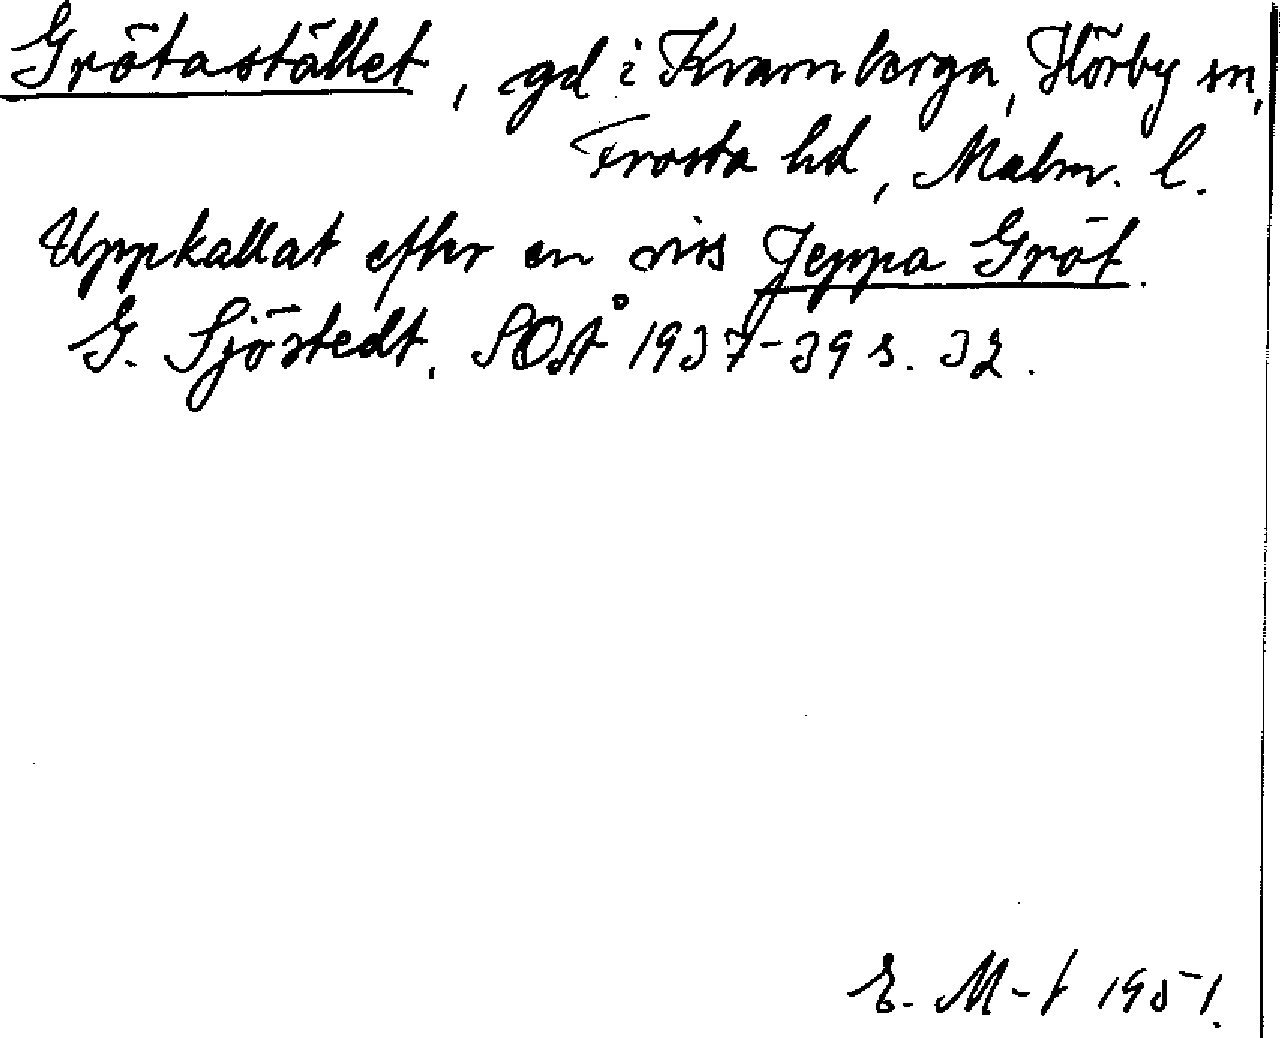 Grötastället, gd i Kvarnberga, Hörby sn,
Frosta hd, Malm. l.
Uppkallat efter en viss Jeppa Gröt.
G. Sjöstedt, SOSÅ 1937-39 s. 32.
E. M-t 1951.